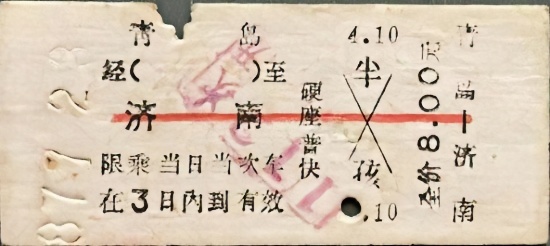 青 岛
经( )至
济 南
限乘当日当次车
在3日内到有效
硬座普快
4.10
半
孩
.10
全价8.00元
青岛—济南